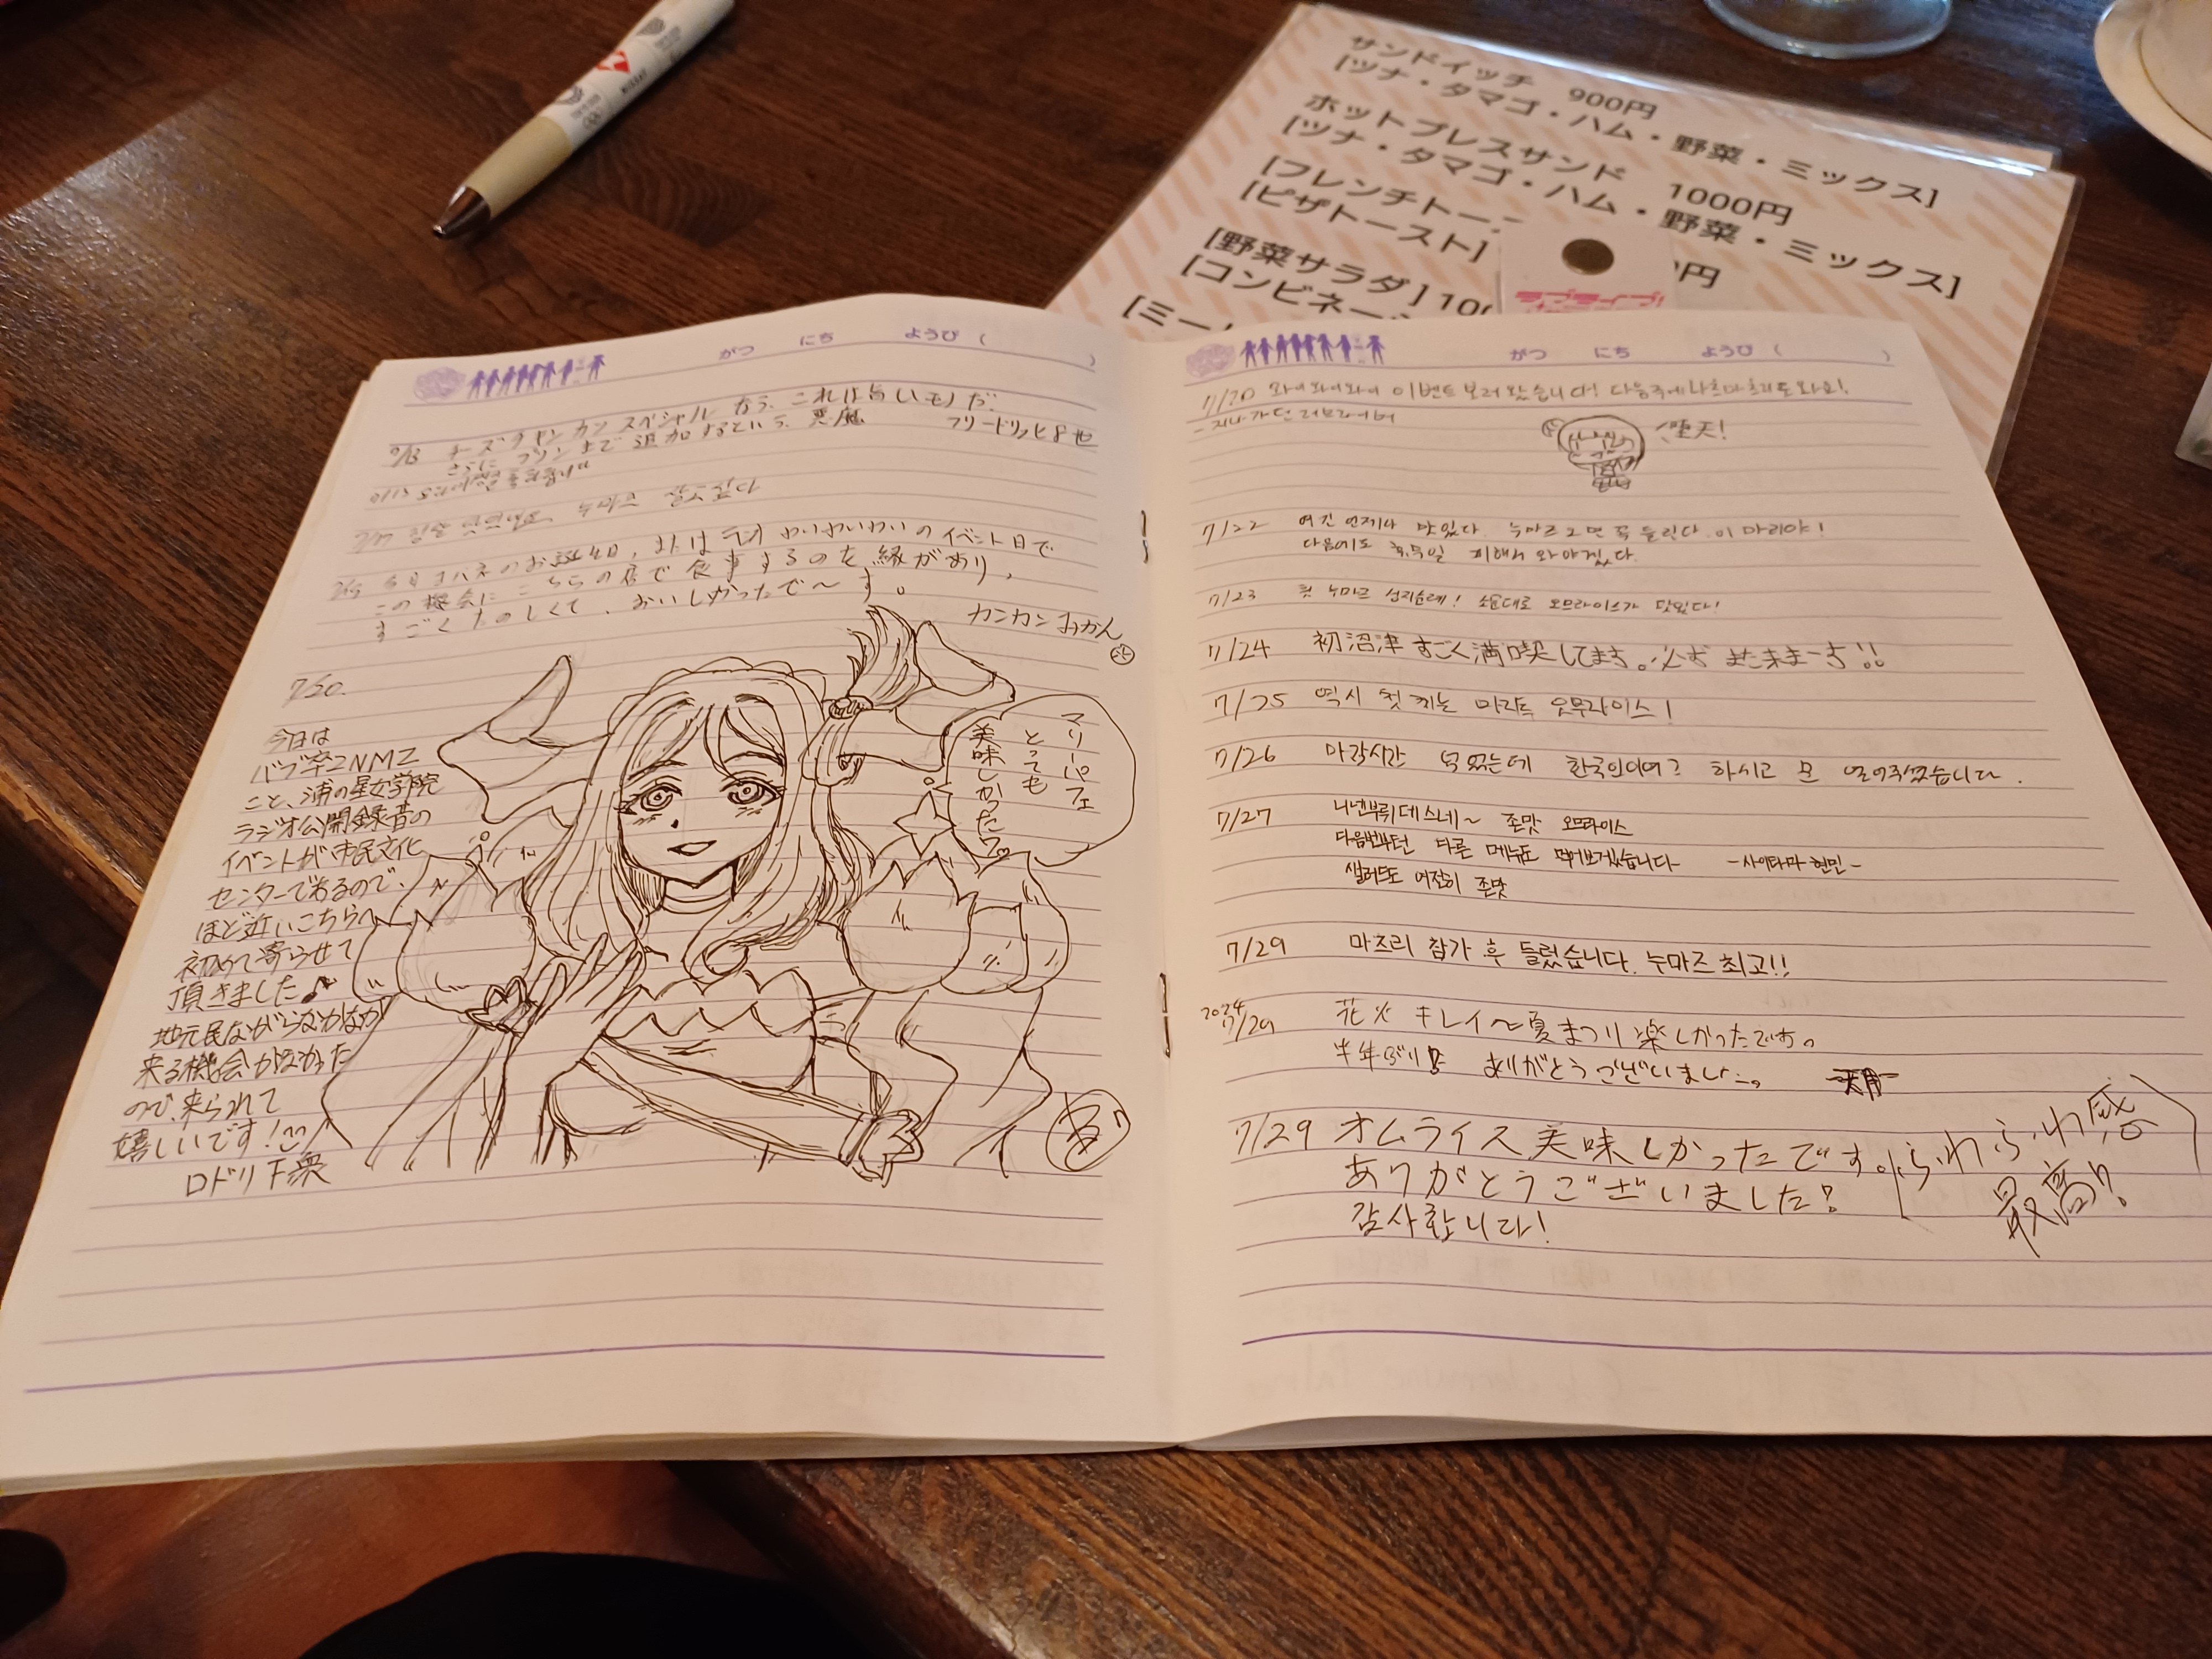 サンドイッチ 900円
[ツナ・タマゴ・ハム・野菜・ミックス]
ホットプレスサンド 1000円
[ツナ・タマゴ・ハム・野菜・ミックス]
[フレンチトー
[ピザトースト] 円
[野菜サラダ] 10
[コンビネー
[ミー
ラブライブ!
がつ にち ようび( )
チーズタヤンカンスペシャル なう、これは旨いモノだ。
さらに プリンまで追加するという、悪魔
フリードリッヒ8世
누마즈
7/13 今日ヨハネのお誕生日、または わいわいわいのイベント日で
この機会にこちらの店で食事するのを縁があり、
すごくたのしくて、おいしかったで〜す。
カンカンみかん
7/20.
今日は
こと、浦の星女学院
ラジオ公開録音の
イベントが市民文化
センターであるので、
ほど近いこちらへ
初めて寄らせて
頂きました♪
地元民ながらなかなか
来る機会がなかった
ので、来られて
嬉しいです!
ロドリゲ衆
マリーパフェ
とっても
美味しかった
がつ にち ようび( )
7/20 와이와이와이 이벤트 보러 왔습니다! 다음주에 나츠마츠리도 와요!
- 지나가던 러브라이버
堕天!
7/22 여긴 언제나 맛있다. 누마즈 오면 꼭 들린다. 이 마리야!
다음에도 휴무일 피해서 와야겠다.
7/23 첫 누마즈 성지순례! 소문대로 오므라이스가 맛있다!
7/24 初沼津 すごく満喫してます。必ず また来まーす!!
7/25 역시 첫 끼는 마리노 오무라이스!
7/26 마감시간 넘었는데 한국인이여? 하시고 문 열어주셨습니다.
7/27 니넨부뤼데스네~ 존맛 오므라이스
다음번부턴 다른 메뉴도 먹어보겠습니다 -사이타마 현민-
샐러드도 여전히 존맛
7/29 마츠리 참가 후 들렀습니다. 누마즈 최고!!
2024
7/29 花火 キレイ〜夏まつり楽しかったです。
半年ぶり ありがとうございました。
7/29 オムライス美味しかったです。(ふわふわ感
最高!?
ありがとうございました!
감사합니다!